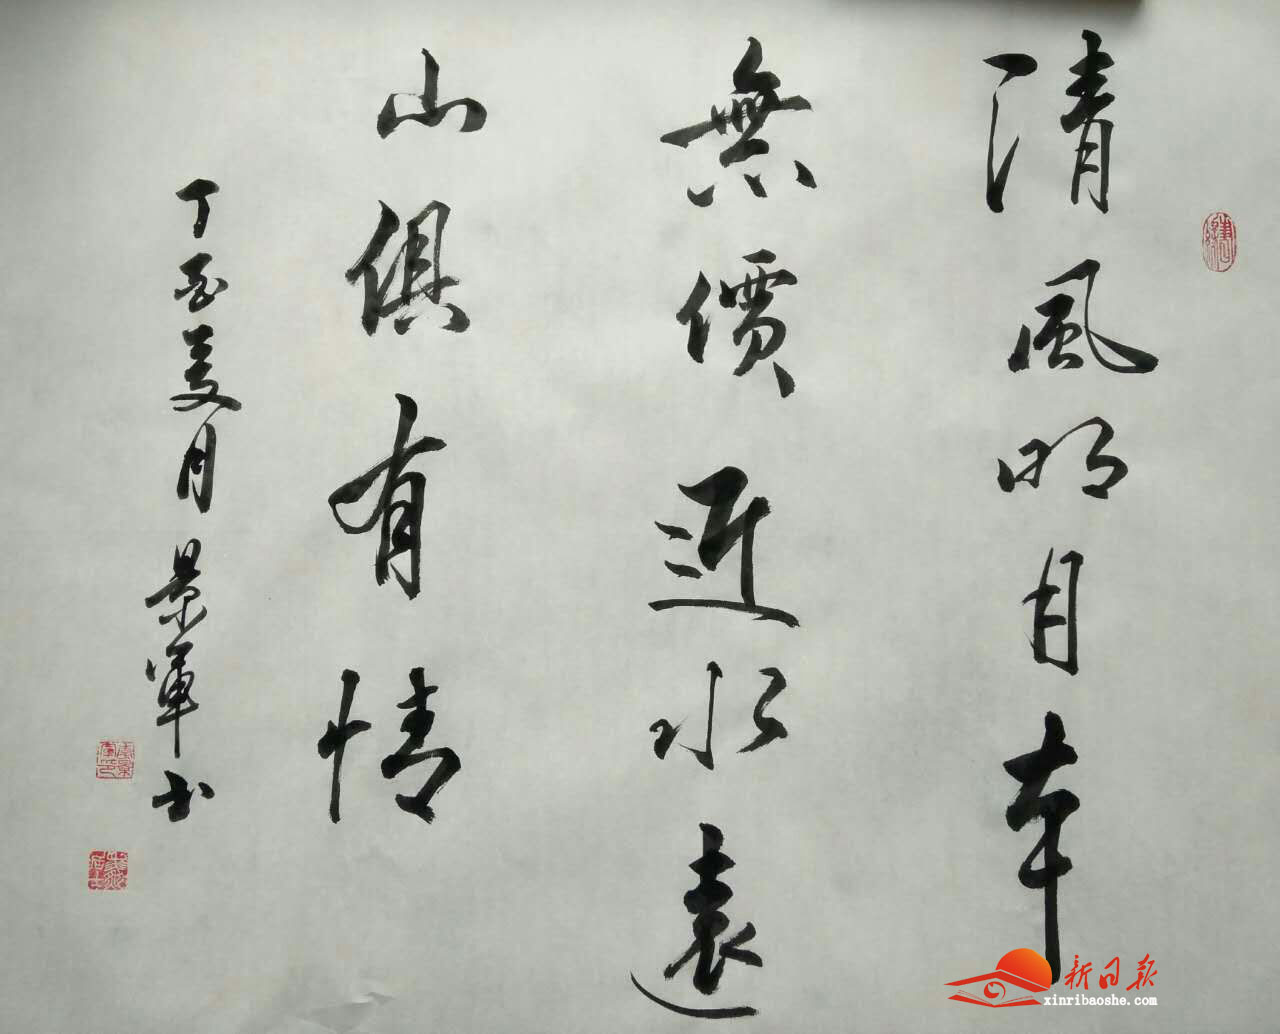 清風明月本
無價近水遠
山俱有情
丁酉夏月景軍书
新日报
xinribaoshe.com